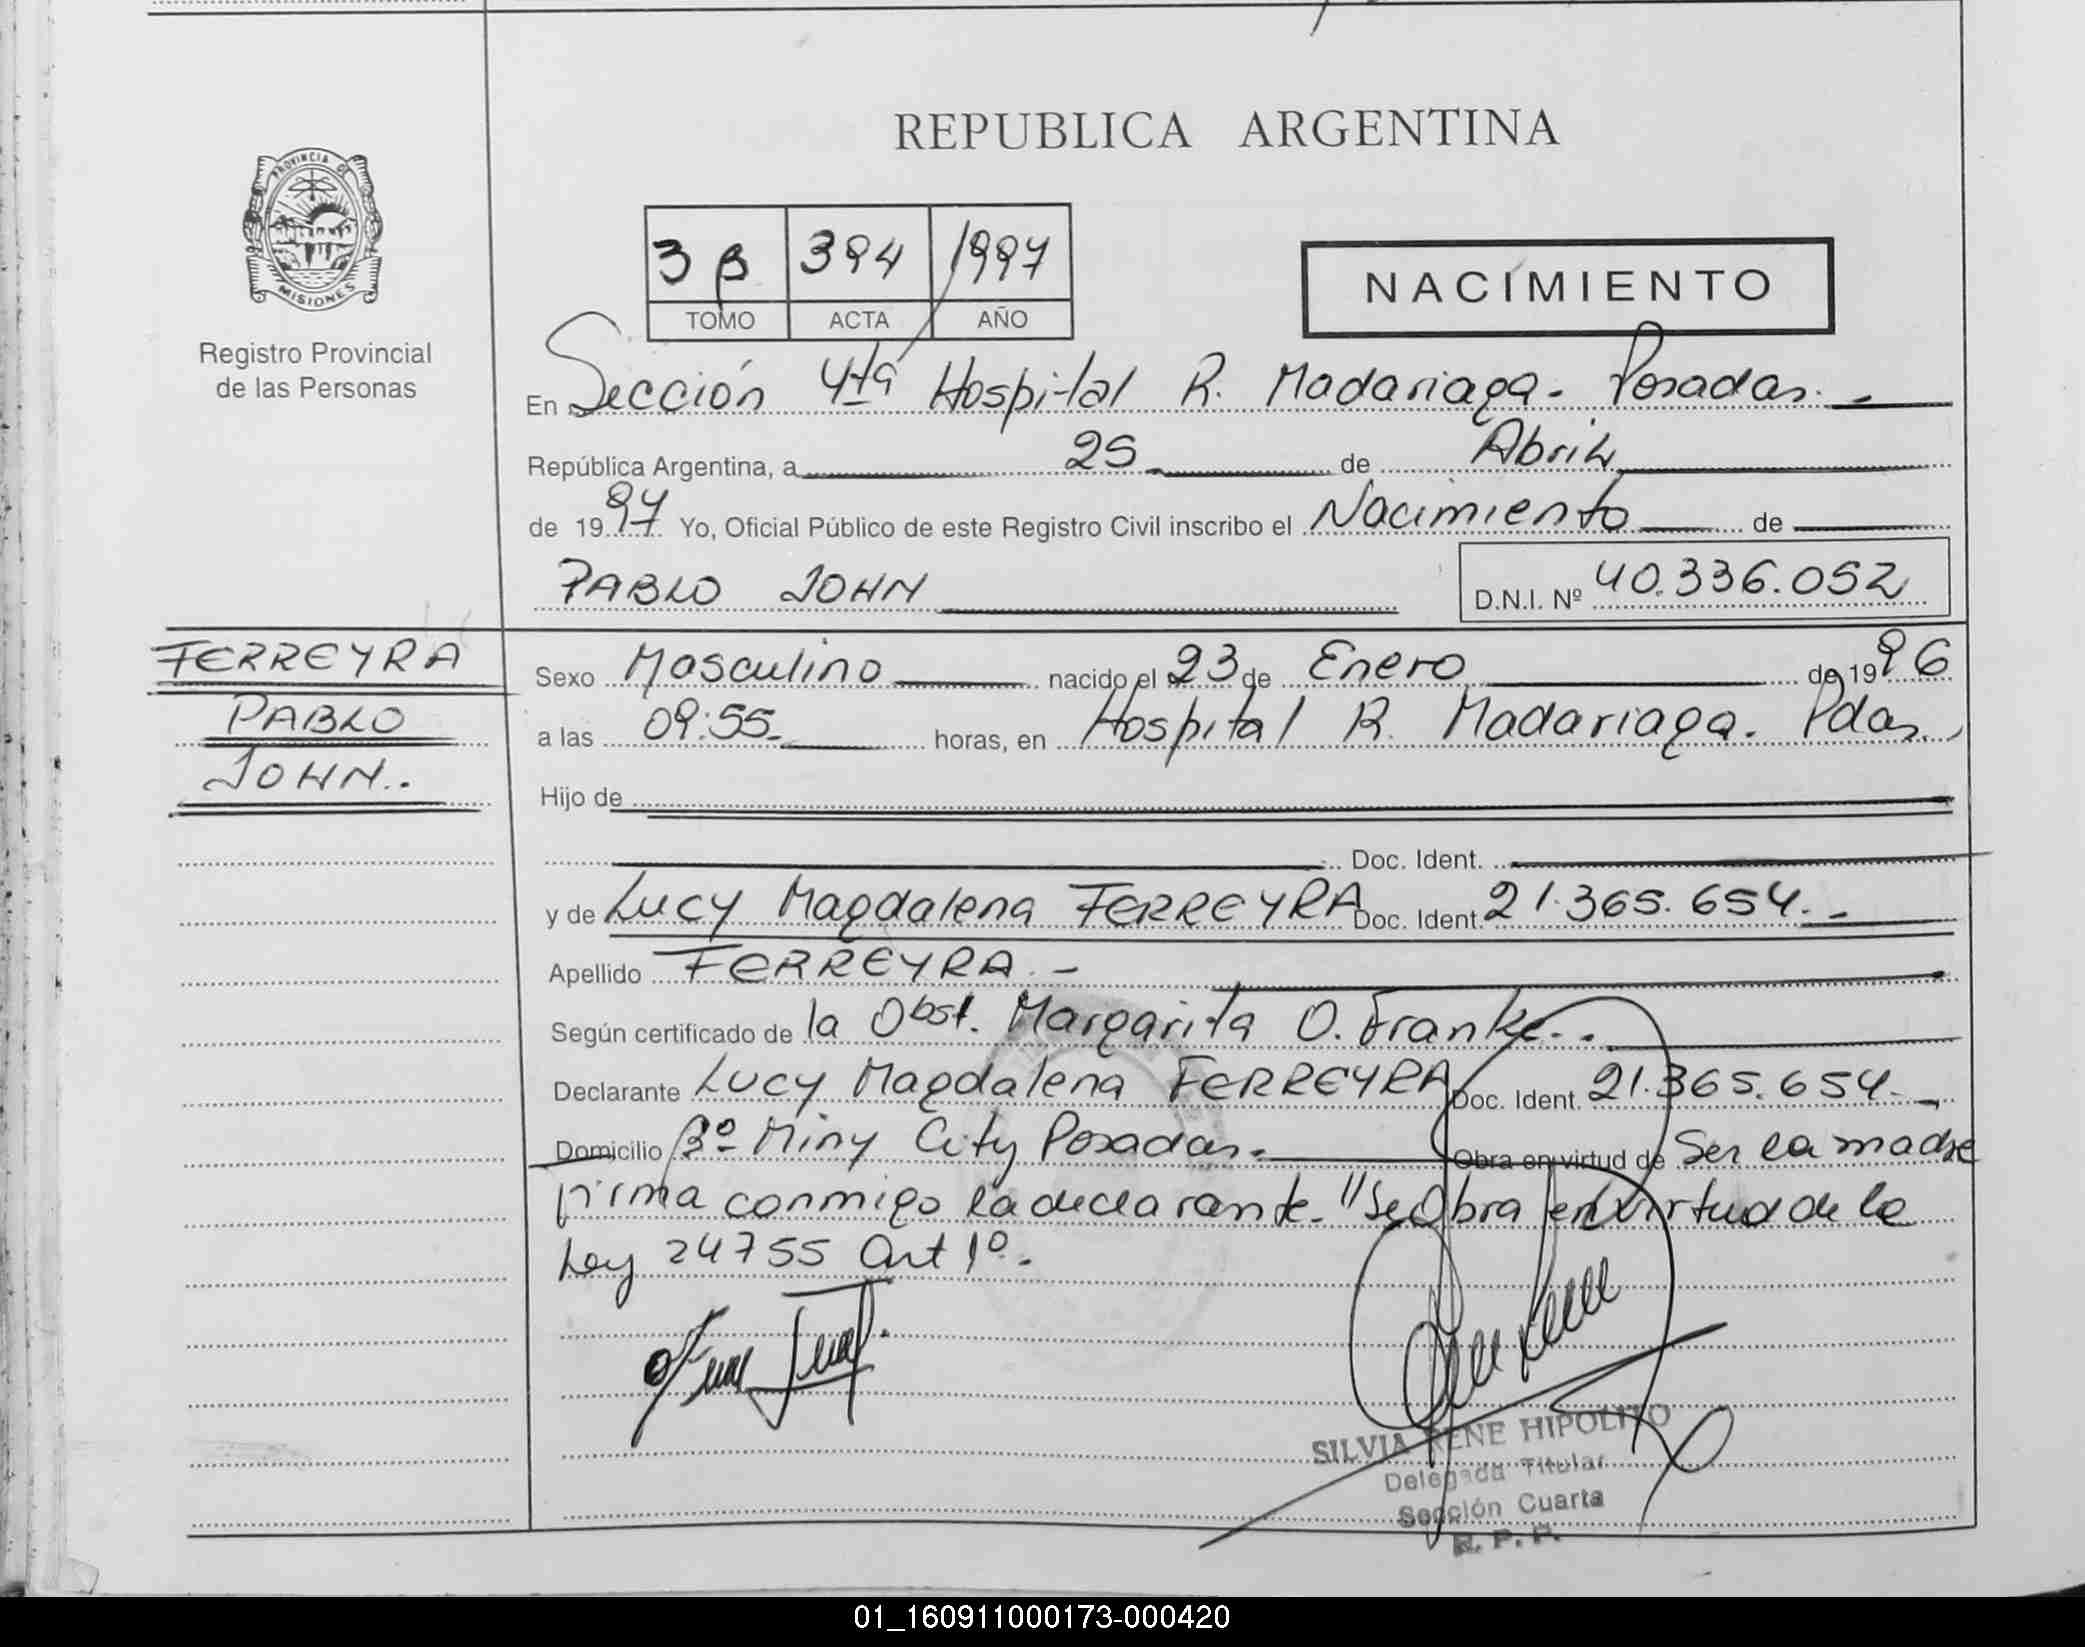 REPUBLICA ARGENTINA
PROVINCIA DE
MISIONES
Registro Provincial
de las Personas
3 B 394 1997
TOMO ACTA AÑO
NACIMIENTO
En Sección 4ta Hospital R. Madariaga. Posadas.-
República Argentina, a 25 de Abril
de 1997 Yo, Oficial Público de este Registro Civil inscribo el Nacimiento de
PABLO JOHN D.N.I. Nº 40.336.052
FERREYRA
PABLO
JOHN..
Sexo Masculino nacido el 23 de Enero de 1996
a las 09:55 horas, en Hospital R. Madariaga. Pdas.
Hijo de
Doc. Ident.
y de Lucy Magdalena FERREYRA Doc. Ident. 21.365.654.-
Apellido FERREYRA.-
Según certificado de la Obst. Margarita O. Franke..
Declarante Lucy Magdalena FERREYRA Doc. Ident. 21.365.654.-
Domicilio Bº Miny City Posadas.- Obra en virtud de Ser la madre
firma conmigo la declarante. "Se Obra en virtud de la
Ley 24755 Art 1º.-
SILVIA RENE HIPOLITO
Delegada Titular
Sección Cuarta
R. P. P.
01_160911000173-000420